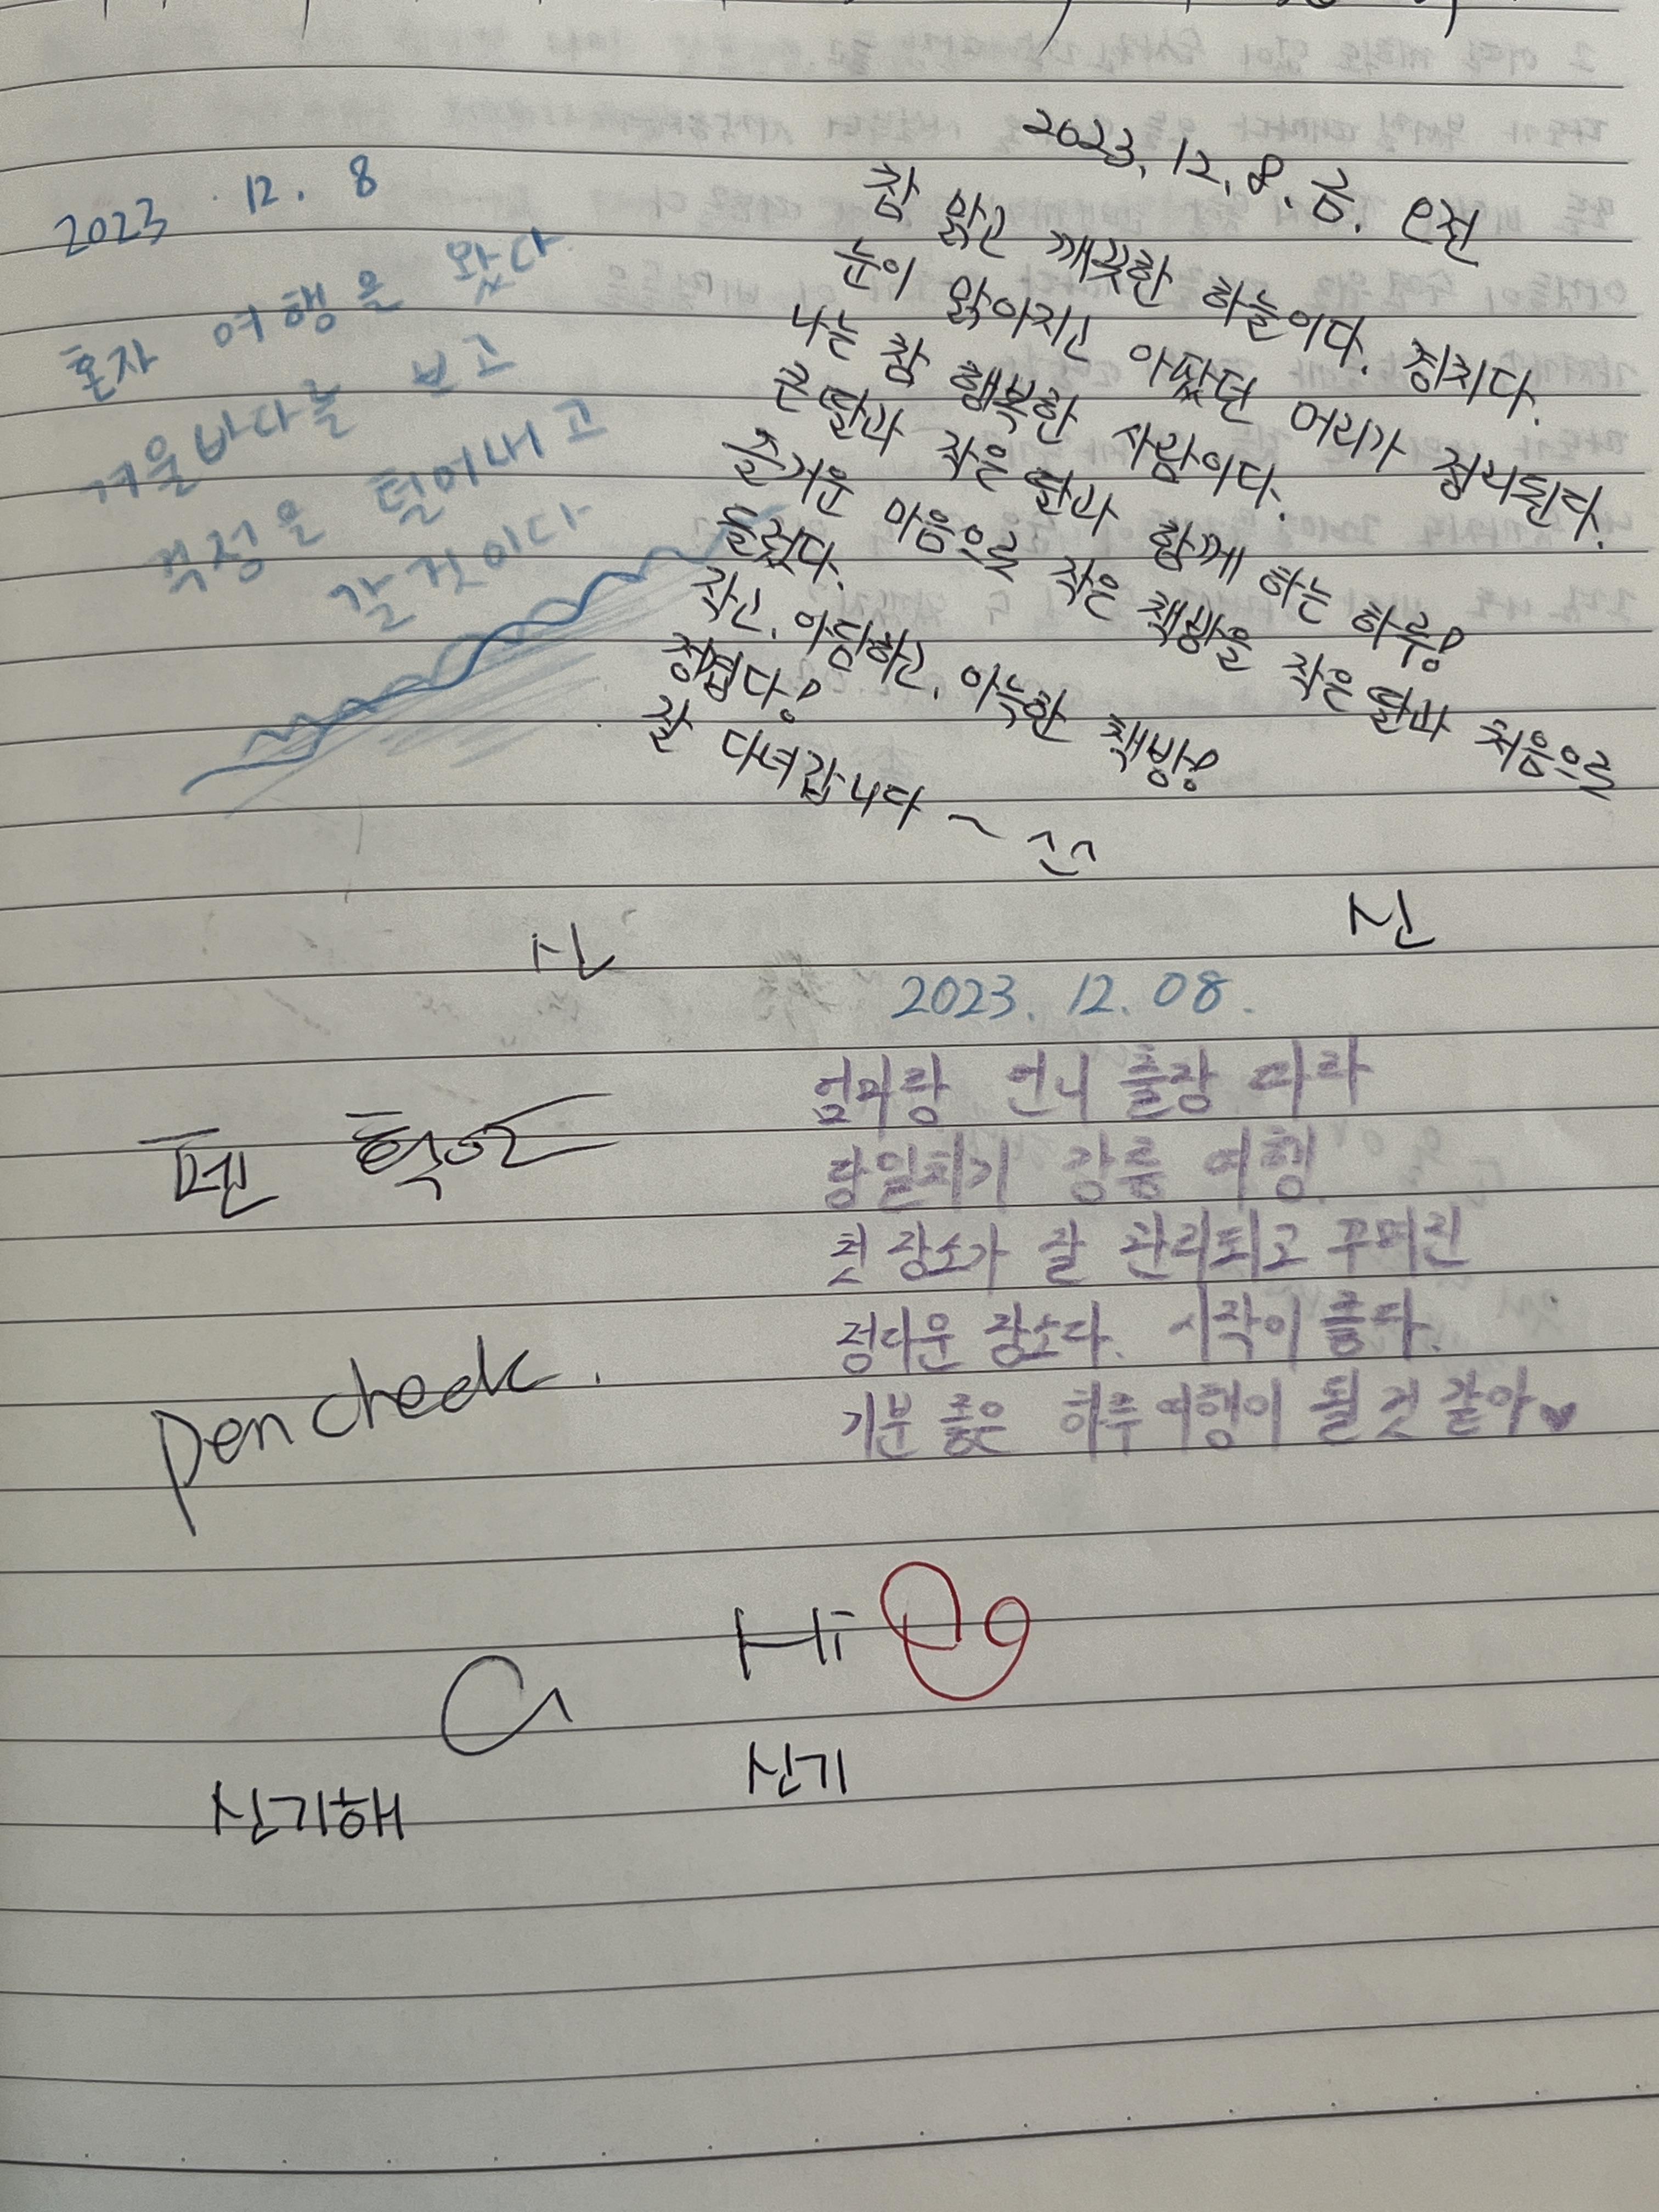 2023. 12. 8
혼자 여행을 왔다
겨울바다를 보고
걱정을 털어내고
갈 것이다
2023. 12. 8. 금. 오전
참 맑고 깨끗한 하늘이다. 킹치다.
눈이 맑아지고 아팠던 머리가 정리된다.
나는 참 행복한 사람이다.
큰 딸과 작은 딸과 함께 하는 하루!
즐거운 마음으로 작은 책방을 작은 딸과 처음으로
들렀다.
작고, 아담하고, 아늑한 책방!
정겹다!
잘 다녀갑니다~ ^^
신
신
2023. 12. 08.
엄마랑 언니 출장 따라
당일치기 강릉 여행
첫 장소가 잘 관리되고 꾸며진
정다운 장소다. 시작이 좋다.
기분 좋은 하루 여행이 될 것 같아♥
펜 확인
pen check.
Hi
신기
신기해